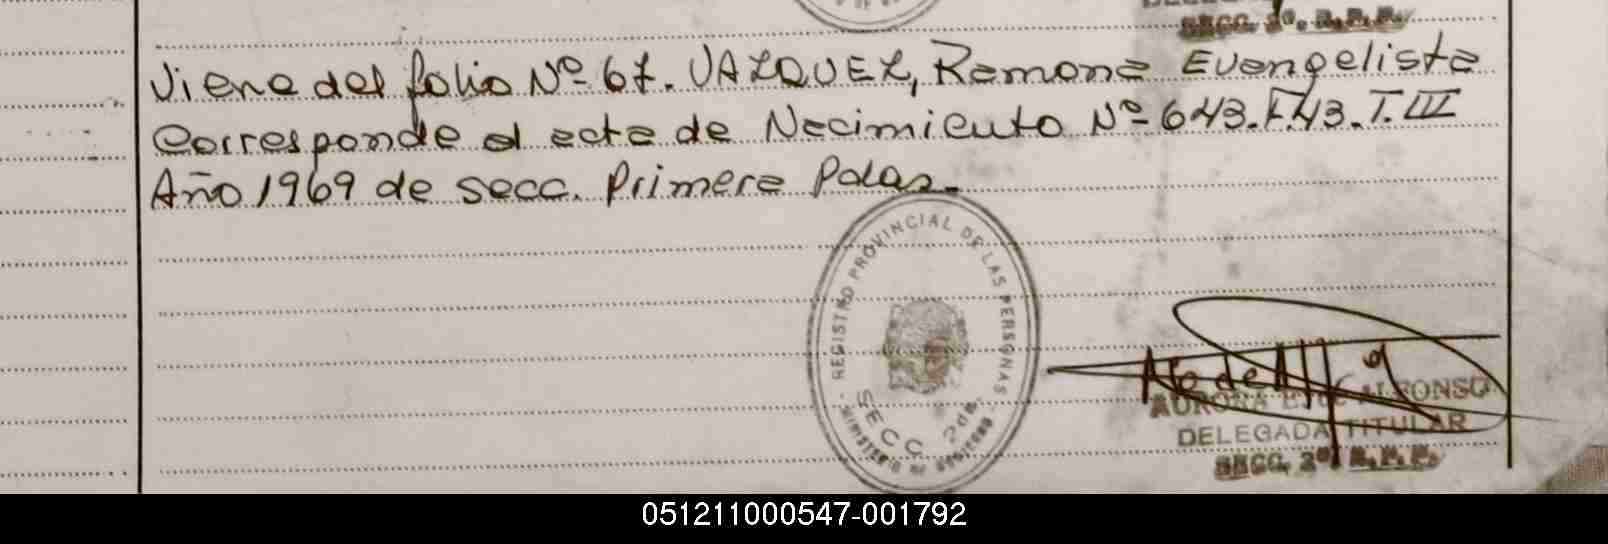 SECC. 2ª. R.P.P.
Viene del folio Nº 67. VAZQUEZ, Ramona Evangelista
Corresponde al acta de Nacimiento Nº 643. F.43. T. III
Año 1969 de secc. Primera Pdas.
REGISTRO PROVINCIAL DE LAS PERSONAS
MINISTERIO DE GOBIERNO
SECC. 2da.
AURORA ALFONSO
DELEGADA TITULAR
SECC. 2ª R.P.P.
051211000547-001792